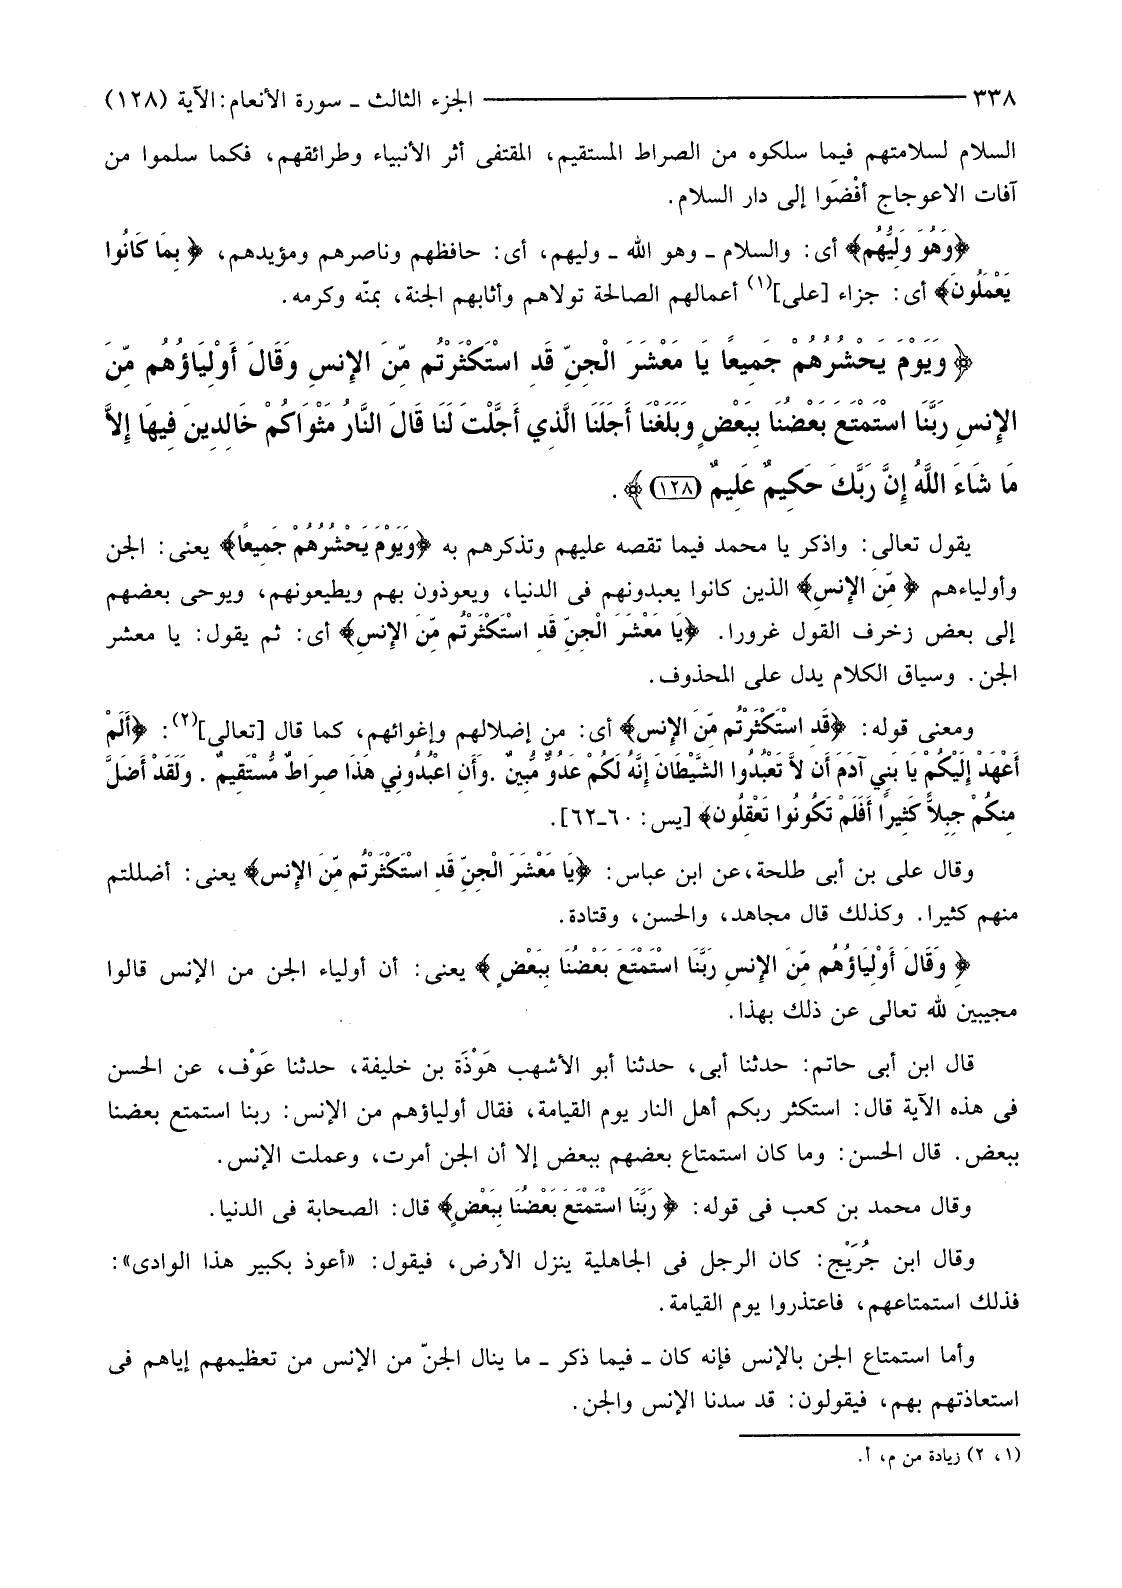 ٣٣٨ ــــــــــــــــــــــــــــــــــــــــ الجزء الثالث ـ سورة الأنعام: الآية (١٢٨)
السلام لسلامتهم فيما سلكوه من الصراط المستقيم، المقتفى أثر الأنبياء وطرائقهم، فكما سلموا من
آفات الاعوجاج أفْضَوا إلى دار السلام.
﴿وَهُوَ وَلِيُّهُم﴾ أى: والسلام ـ وهو الله ـ وليهم، أى: حافظهم وناصرهم ومؤيدهم، ﴿ بِمَا كَانُوا
يَعْمَلُونَ﴾ أى: جزاء [على](١) أعمالهم الصالحة تولاهم وأثابهم الجنة، بمنّه وكرمه.
﴿ وَيَوْمَ يَحْشُرُهُمْ جَمِيعًا يَا مَعْشَرَ الْجِنِّ قَدِ اسْتَكْثَرْتُم مِّنَ الإِنسِ وَقَالَ أَوْلِيَاؤُهُم مِّنَ
الإِنسِ رَبَّنَا اسْتَمْتَعَ بَعْضُنَا بِبَعْضٍ وَبَلَغْنَا أَجَلَنَا الَّذِي أَجَّلْتَ لَنَا قَالَ النَّارُ مَثْوَاكُمْ خَالِدِينَ فِيهَا إِلاَّ
مَا شَاءَ اللَّهُ إِنَّ رَبَّكَ حَكِيمٌ عَلِيمٌ (١٢٨) ﴾ .
يقول تعالى: واذكر يا محمد فيما تقصه عليهم وتذكرهم به ﴿وَيَوْمَ يَحْشُرُهُمْ جَمِيعًا﴾ يعنى: الجن
وأولياءهم ﴿ مِّنَ الإِنسِ﴾ الذين كانوا يعبدونهم فى الدنيا، ويعوذون بهم ويطيعونهم، ويوحى بعضهم
إلى بعض زخرف القول غرورا. ﴿يَا مَعْشَرَ الْجِنِّ قَدِ اسْتَكْثَرْتُم مِّنَ الإِنسِ﴾ أى: ثم يقول: يا معشر
الجن. وسياق الكلام يدل على المحذوف.
ومعنى قوله: ﴿قَدِ اسْتَكْثَرْتُم مِّنَ الإِنسِ﴾ أى: من إضلالهم وإغوائهم، كما قال [تعالى](٢): ﴿أَلَمْ
أَعْهَدْ إِلَيْكُمْ يَا بَنِي آدَمَ أَن لاَّ تَعْبُدُوا الشَّيْطَانَ إِنَّهُ لَكُمْ عَدُوٌّ مُّبِينٌ . وَأَنِ اعْبُدُونِي هَذَا صِرَاطٌ مُّسْتَقِيمٌ . وَلَقَدْ أَضَلَّ
مِنكُمْ جِبِلاًّ كَثِيرًا أَفَلَمْ تَكُونُوا تَعْقِلُون﴾ [يس: ٦٠ـ٦٢].
وقال على بن أبى طلحة، عن ابن عباس: ﴿يَا مَعْشَرَ الْجِنِّ قَدِ اسْتَكْثَرْتُم مِّنَ الإِنسِ﴾ يعنى: أضللتم
منهم كثيرا. وكذلك قال مجاهد، والحسن، وقتادة.
﴿ وَقَالَ أَوْلِيَاؤُهُم مِّنَ الإِنسِ رَبَّنَا اسْتَمْتَعَ بَعْضُنَا بِبَعْضٍ ﴾ يعنى: أن أولياء الجن من الإنس قالوا
مجيبين لله تعالى عن ذلك بهذا.
قال ابن أبى حاتم: حدثنا أبى، حدثنا أبو الأشهب هَوْذَة بن خليفة، حدثنا عَوْف، عن الحسن
فى هذه الآية قال: استكثر ربكم أهل النار يوم القيامة، فقال أولياؤهم من الإنس: ربنا استمتع بعضنا
ببعض. قال الحسن: وما كان استمتاع بعضهم ببعض إلا أن الجن أمرت، وعملت الإنس.
وقال محمد بن كعب فى قوله: ﴿ رَبَّنَا اسْتَمْتَعَ بَعْضُنَا بِبَعْضٍ﴾ قال: الصحابة فى الدنيا.
وقال ابن جُرَيْج: كان الرجل فى الجاهلية ينزل الأرض، فيقول: «أعوذ بكبير هذا الوادى»:
فذلك استمتاعهم، فاعتذروا يوم القيامة.
وأما استمتاع الجن بالإنس فإنه كان ـ فيما ذكر ـ ما ينال الجنّ من الإنس من تعظيمهم إياهم فى
استعاذتهم بهم، فيقولون: قد سدنا الإنس والجن.
(١، ٢) زيادة من م، أ.